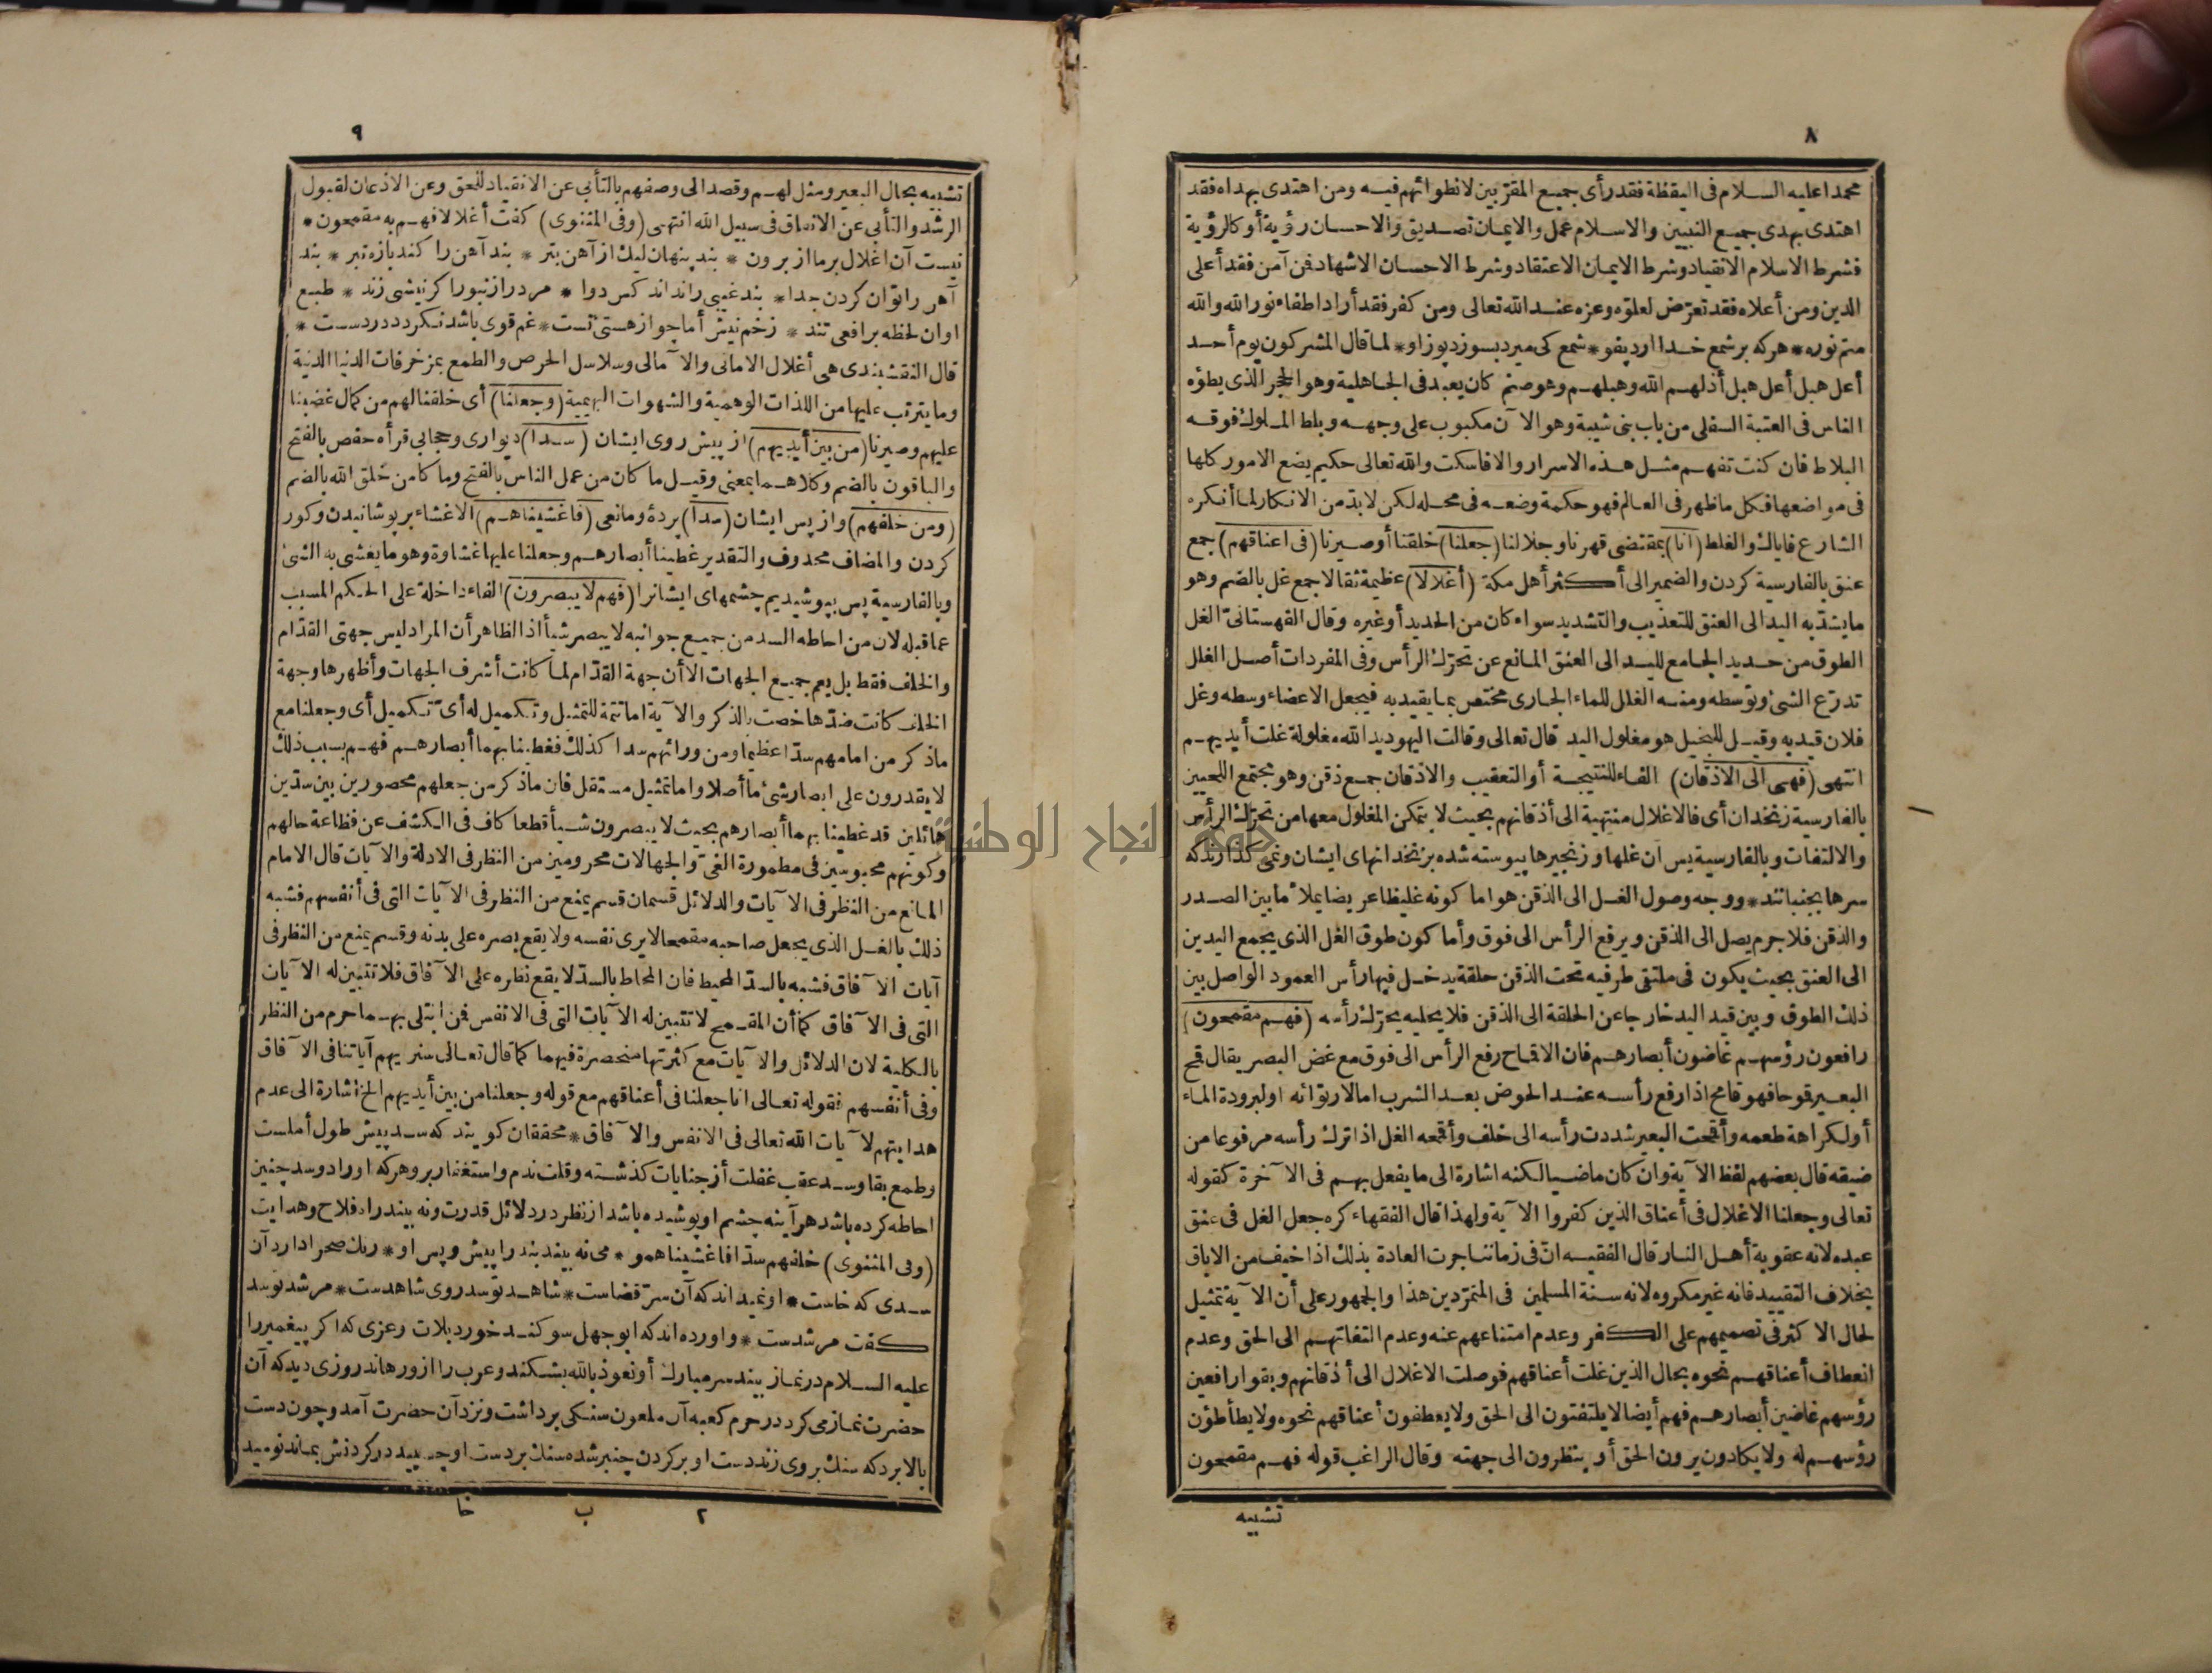 ٨
محمدا عليه السلام فى اليقظة فقد رأى جميع المقربين لانطوائهم فيه ومن اهتدى بهداه فقد
اهتدى بهدى جميع النبيين والاسلام عمل والايمان تصديق والاحسان رؤية أو كالرؤية
فشرط الاسلام الانقياد وشرط الايمان الاعتقاد وشرط الاحسان الاشهاد فمن آمن فقد أعلى
الدين ومن أعلاه فقد تعرّض لعلوّه وعزه عند الله تعالى ومن كفر فقد أراد اطفاء نور الله والله
متم نوره * هر كه بر شمع خدا آرد پفو * شمع كى ميرد بسوزد پوز او * لما قال المشركون يوم أحد
أعل هبل أعل هبل أذلهم الله وهبلهم وهو صنم كان يعبد فى الجاهلية وهو الحجر الذى يطؤه
الناس فى العتبة السفلى من باب بنى شيبة وهو الآن مكبوب على وجهه وبلط الملوك فوقه
البلاط فان كنت تفهم مثل هذه الاسرار والا فاسكت والله تعالى حكيم يضع الامور كلها
فى مواضعها فكل ما ظهر فى العالم فهو حكمة وضعه فى محله لكن لابدّ من الانكار لما أنكره
الشارع فاياك والغلط (انا) بمقتضى قهرنا وجلالنا (جعلنا) خلقنا أو صيرنا (فى اعناقهم) جمع
عنق بالفارسية كردن والضمير الى أكثر أهل مكة (أغلالا) عظيمة ثقالا جمع غل بالضم وهو
ما يشدّ به اليد الى العنق للتعذيب والتشديد سواء كان من الحديد أو غيره وقال القهستانىّ الغل
الطوق من حديد الجامع لليد الى العنق المانع عن تحرّك الرأس وفى المفردات أصل الغلل
تدرّع الشئ وتوسطه ومنه الغلل للماء الجارى مختص بما يقيد به فيجعل الاعضاء وسطه وغل
فلان قيد به وقيل للبخيل هو مغلول اليد قال تعالى وقالت اليهود يد الله مغلولة غلت أيديهم
انتهى (فهى الى الاذقان) الفاء للنتيجة أو التعقيب والاذقان جمع ذقن وهو مجتمع اللحيين
بالفارسية زنخدان أى فالاغلال منتهية الى أذقانهم بحيث لا يتمكن المغلول معها من تحرّك الرأس
والالتفات وبالفارسية پس آن غلها و زنجيرها پيوسته شده بزنخدانهاى ايشان ونمى كذارند كه
سرها بجنبانند * ووجه وصول الغل الى الذقن هو اما كونه غليظا عريضا يملأ ما بين الصدر
والذقن فلا جرم يصل الى الذقن ويرفع الرأس الى فوق وأما كون طوق الغل الذى يجمع اليدين
الى العنق بحيث يكون فى ملتقى طرفيه تحت الذقن حلقة يدخل فيها رأس العمود الواصل بين
ذلك الطوق وبين قيد اليد خارجا عن الحلقة الى الذقن فلا يخليه يحرّك رأسه (فهم مقمحون)
رافعون رؤسهم غاضون أبصارهم فان الاقماح رفع الرأس الى فوق مع غض البصر يقال قمح
البعير قوحا فهو قامح اذا رفع رأسه عند الحوض بعد الشرب اما لارتوائه او لبرودة الماء
أو لكراهة طعمه وأقمحت البعير شددت رأسه الى خلف وأقمحه الغل اذا ترك رأسه مرفوعا من
ضيقه قال بعضهم لفظ الآية وان كان ماضيا لكنه اشارة الى ما يفعل بهم فى الآخرة كقوله
تعالى وجعلنا الاغلال فى أعناق الذين كفروا الآية ولهذا قال الفقهاء كره جعل الغل فى عنق
عبده لانه عقوبة أهل النار قال الفقيه انّ فى زماننا جرت العادة بذلك اذا خيف من الاباق
بخلاف التقييد فانه غير مكروه لانه سنة المسلمين فى المتمرّدين هذا والجمهور على أن الآية تمثيل
لحال الاكثر فى تصميمهم على الكفر وعدم امتناعهم عنه وعدم التفاتهم الى الحق وعدم
انعطاف أعناقهم نحوه بحال الذين غلت أعناقهم فوصلت الاغلال الى أذقانهم وبقوا رافعين
رؤسهم غاضين أبصارهم فهم أيضا لا يلتفتون الى الحق ولا يعطفون أعناقهم نحوه ولا يطأطؤن
رؤسهم له ولا يكادون يرون الحق أو ينظرون الى جهته وقال الراغب قوله فهم مقمحون
تشبيه
٩
تشبيه بحال البعير ومثل لهم وقصد الى وصفهم بالتأبى عن الانقياد للحق وعن الاذعان لقبول
الرشد والتأبى عن الانفاق فى سبيل الله انتهى (وفى المثنوى) كفت أغلالا فهم به مقمحون *
نيست آن اغلال بر ما از برون * بند پنهان ليك از آهن بتر * بند آهن را كند پاره تبر * بند
آهن را توان كردن جدا * بند غيبى را نداند كس دوا * مرد را زنبور اكر نيشى زند * طبع
او ان لحظه بر افعى تند * زخم نيش أما چو از هستئ تست * غم قوى باشد نكردد درد سست *
قال النقشبندى هى أغلال الامانى والآمالى وسلاسل الحرص والطمع بمزخرفات الدنيا الدنية
وما يترتب عليها من اللذات الوهمية والشهوات البهيمية (وجعلنا) أى خلقنا لهم من كمال غضبنا
عليهم وصيرنا (من بين أيديهم) از پيش روى ايشان (سدا) ديوارى وحجابى قرأه حفص بالفتح
والباقون بالضم وكلاهما بمعنى وقيل ما كان من عمل الناس بالفتح وما كان من خلق الله بالضم
(ومن خلفهم) واز پس ايشان (سدا) پردۀ ومانعى (فاغشيناهم) الاغشاء بر پوشانيدن وكور
كردن والمضاف محذوف والتقدير غطينا أبصارهم وجعلنا عليها غشاوة وهو ما يغشى به الشئ
وبالفارسية پس بپوشيديم چشمهاى ايشانرا (فهم لا يبصرون) الفاء داخلة على الحكم المسبب
عما قبله لان من احاطه السد من جميع جوانبه لا يبصر شيأ اذ الظاهر أن المراد ليس جهتى القدّام
والخلف فقط بل يعم جميع الجهات الا أن جهة القدّام لما كانت أشرف الجهات وأظهرها وجهة
الخلف كانت ضدّها خصت بالذكر والآية اما تتمة للتمثيل وتكميل له أىّ تكميل أى وجعلنا مع
ما ذكر من امامهم سدّا عظيما ومن ورائهم سدا كذلك فغطينا بهما أبصارهم فهم بسبب ذلك
لا يقدرون على ابصار شئ ما أصلا واما تمثيل مستقل فان ما ذكر من جعلهم محصورين بين سدّين
هائلين قد غطينا بهما أبصارهم بحيث لا يبصرون شيأ قطعا كاف فى الكشف عن فظاعة حالهم
وكونهم محبوسين فى مطمورة الغىّ والجهالات محرومين من النظر فى الادلة والآيات قال الامام
المانع من النظر فى الآيات والدلائل قسمان قسم يمنع من النظر فى الآيات التى فى أنفسهم فشبه
ذلك بالغل الذى يجعل صاحبه مقمحا لا يرى نفسه ولا يقع بصره على بدنه وقسم يمنع من النظر فى
آيات الآفاق فشبه بالسدّ المحيط فان المحاط بالسدّ لا يقع نظره على الآفاق فلا تتبين له الآيات
التى فى الآفاق كما أن المقمح لا تتبين له الآيات التى فى الانفس فمن ابتلى بهما حرم من النظر
بالكلية لان الدلائل والآيات مع كثرتها منحصرة فيهما كما قال تعالى سنريهم آياتنا فى الآفاق
وفى أنفسهم فقوله تعالى انا جعلنا فى أعناقهم مع قوله وجعلنا من بين أيديهم الخ اشارة الى عدم
هدايتهم لآيات الله تعالى فى الانفس والآفاق * محققان كويند كه سد پيش طول أملست
وطمع بقا وسد عقب غفلت از جنايات كذشته وقلت ندم واستغفار بر وهر كه اورا دو سد چنين
احاطه كرده باشد هر آينه چشم او پوشيده باشد از نظر در دلائل قدرت ونه بيند راه فلاح وهدايت
(وفى المثنوى) خلفهم سدّا فاغشيناهمو * مى نه بيند بند را پيش وپس او * رنك صحرا دارد آن
سدى كه خاست * او نميداند كه آن سرّ قضاست * شاهد تو سد روى شاهدست * مرشد تو سد
كفت مرشدست * واورده اند كه ابو جهل سوكند خورد بلات وعزى كه اكر پيغمبر را
عليه السلام در نماز بيند سر مبارك أو نعوذ بالله بشكند وعرب را از ور هاند روزى ديد كه آن
حضرت نماز مى كرد در حرم كعبه آن ملعون سنكى برداشت ونزد آن حضرت آمد وچون دست
بالا برد كه سنك بروى زند دست او بر كردن چنبر شده سنك بر دست او چسبيد در كردنش بماند نوميد
٢ ب خا
جامعة النجاح الوطنية